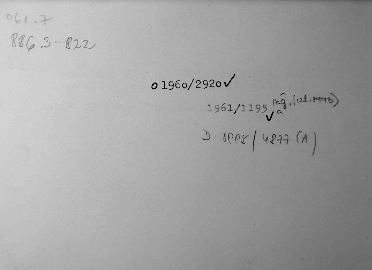 061.7
886.3-822
o 1960/2920 ✓
1961/1195
✓ a
D /4277 (A)